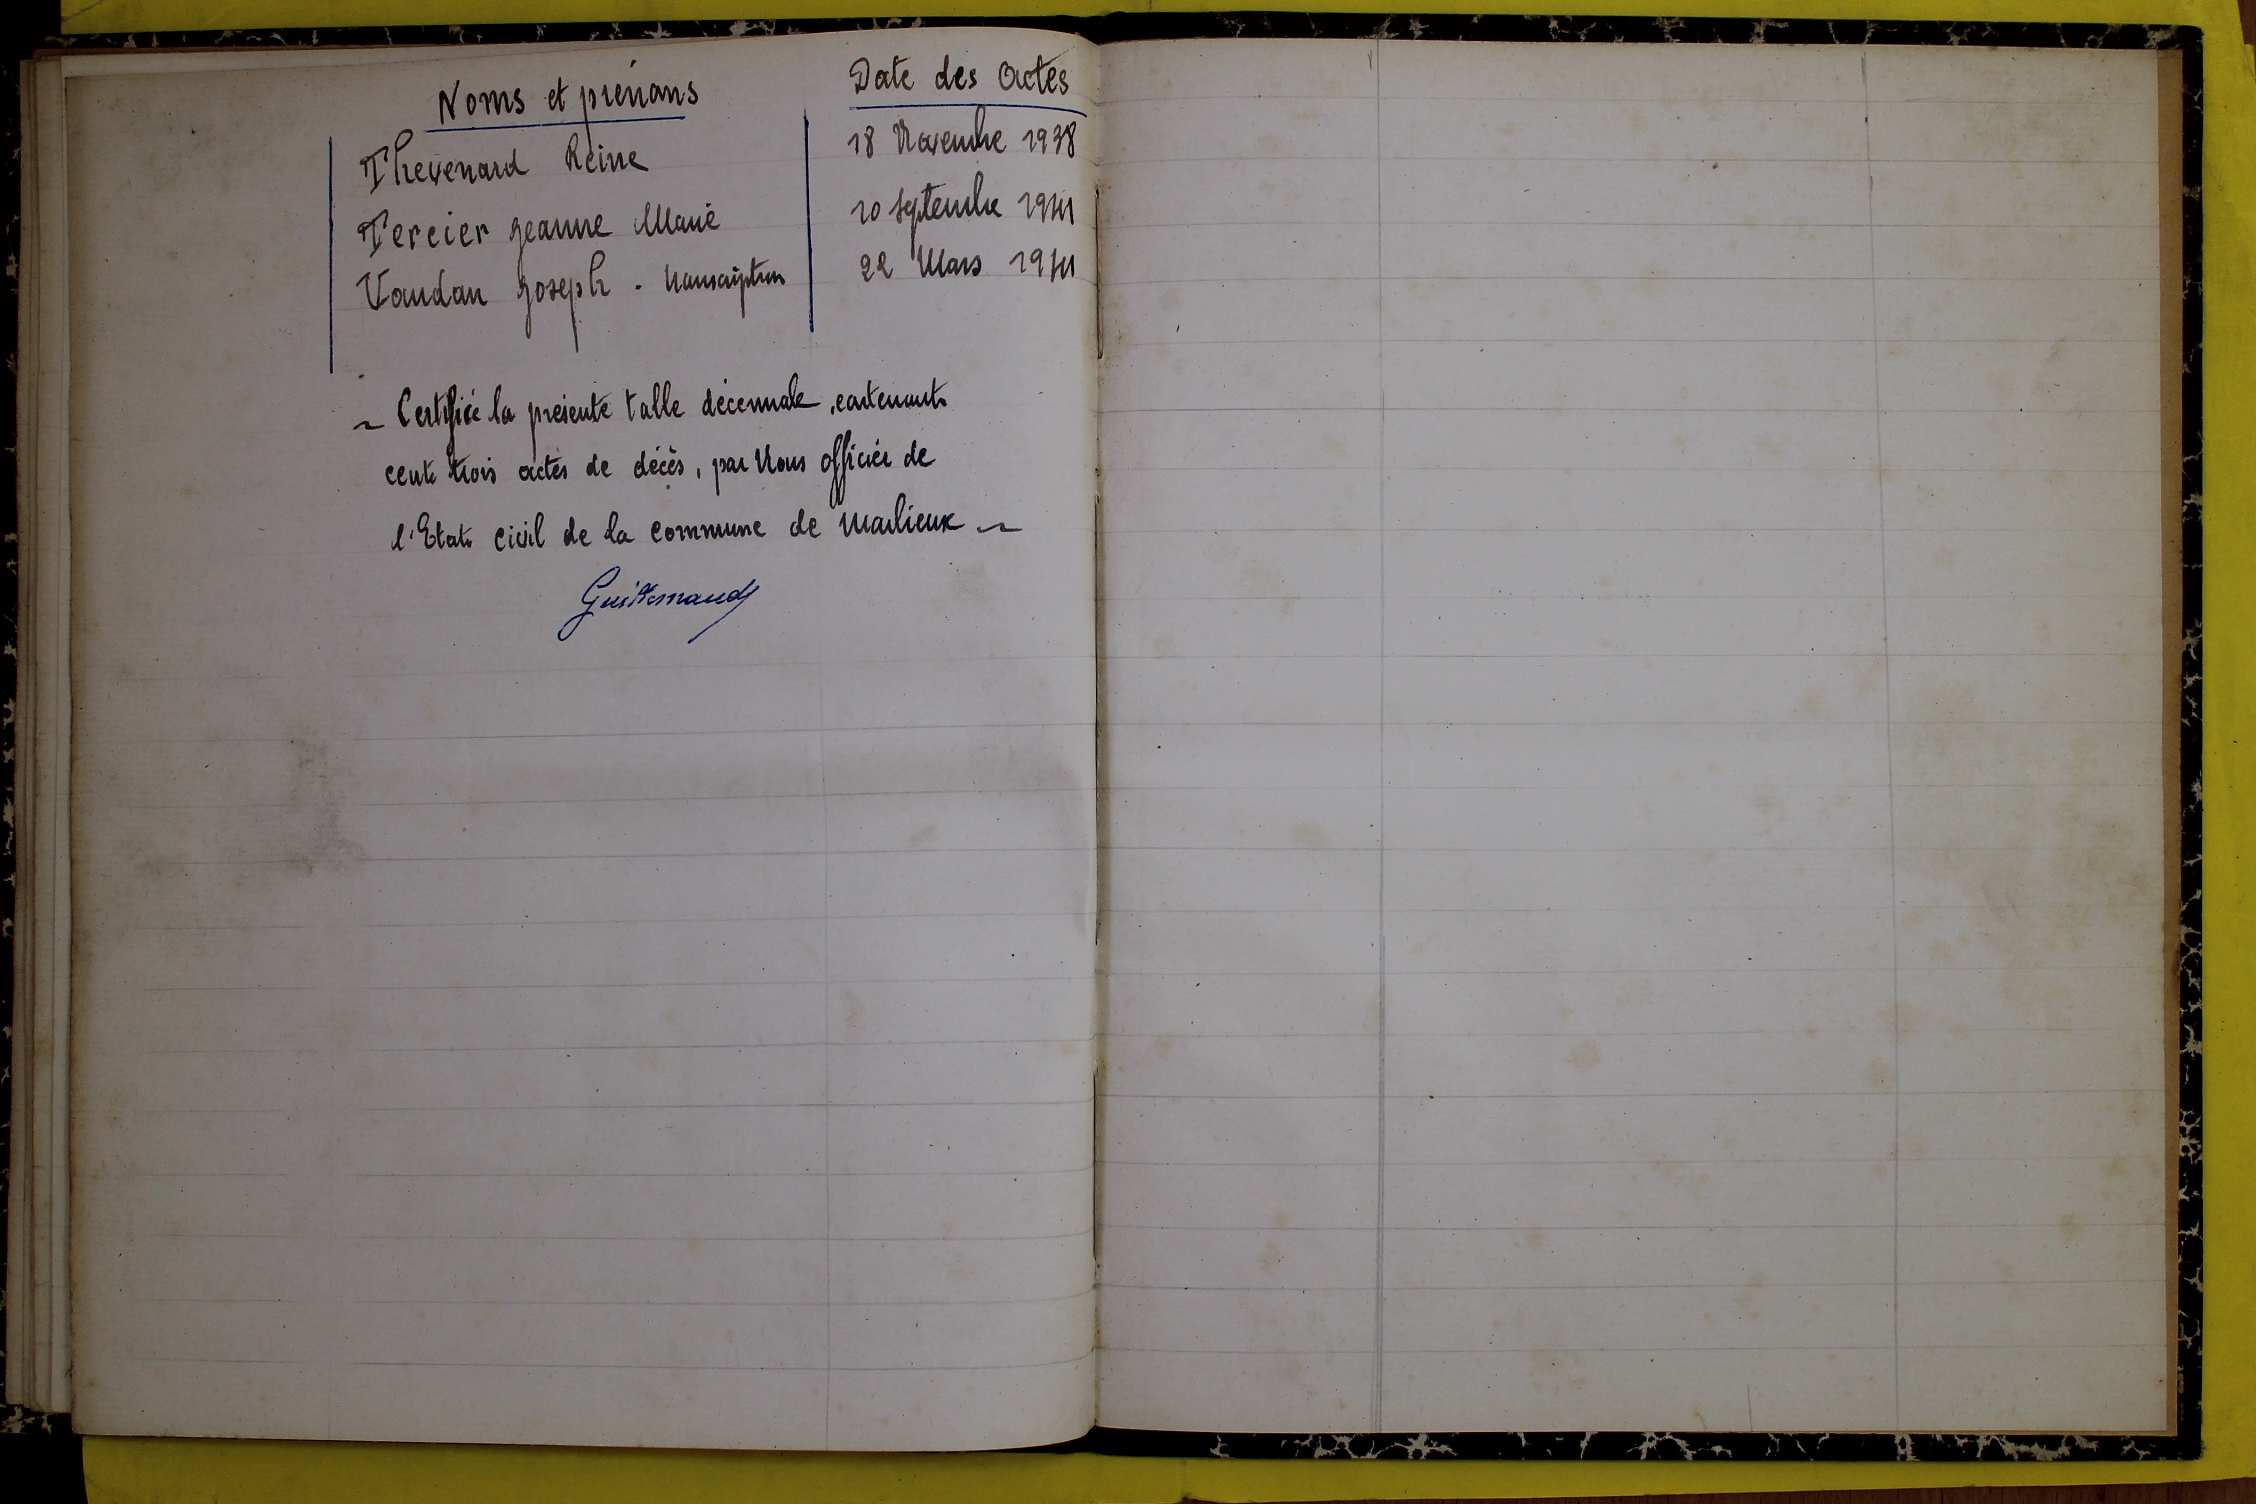 Noms et prénoms
Date des Actes
Thevenard Reine
18 Novembre 1938
Tercier Jeanne Marie
10 Septembre 1941
Vaudan Joseph . transcription
22 Mars 1941
~ Certifiée la présente table décennale, contenant
cent trois actes de décès, par Nous officier de
l'Etat civil de la commune de Marlieux ~
Guillemaud